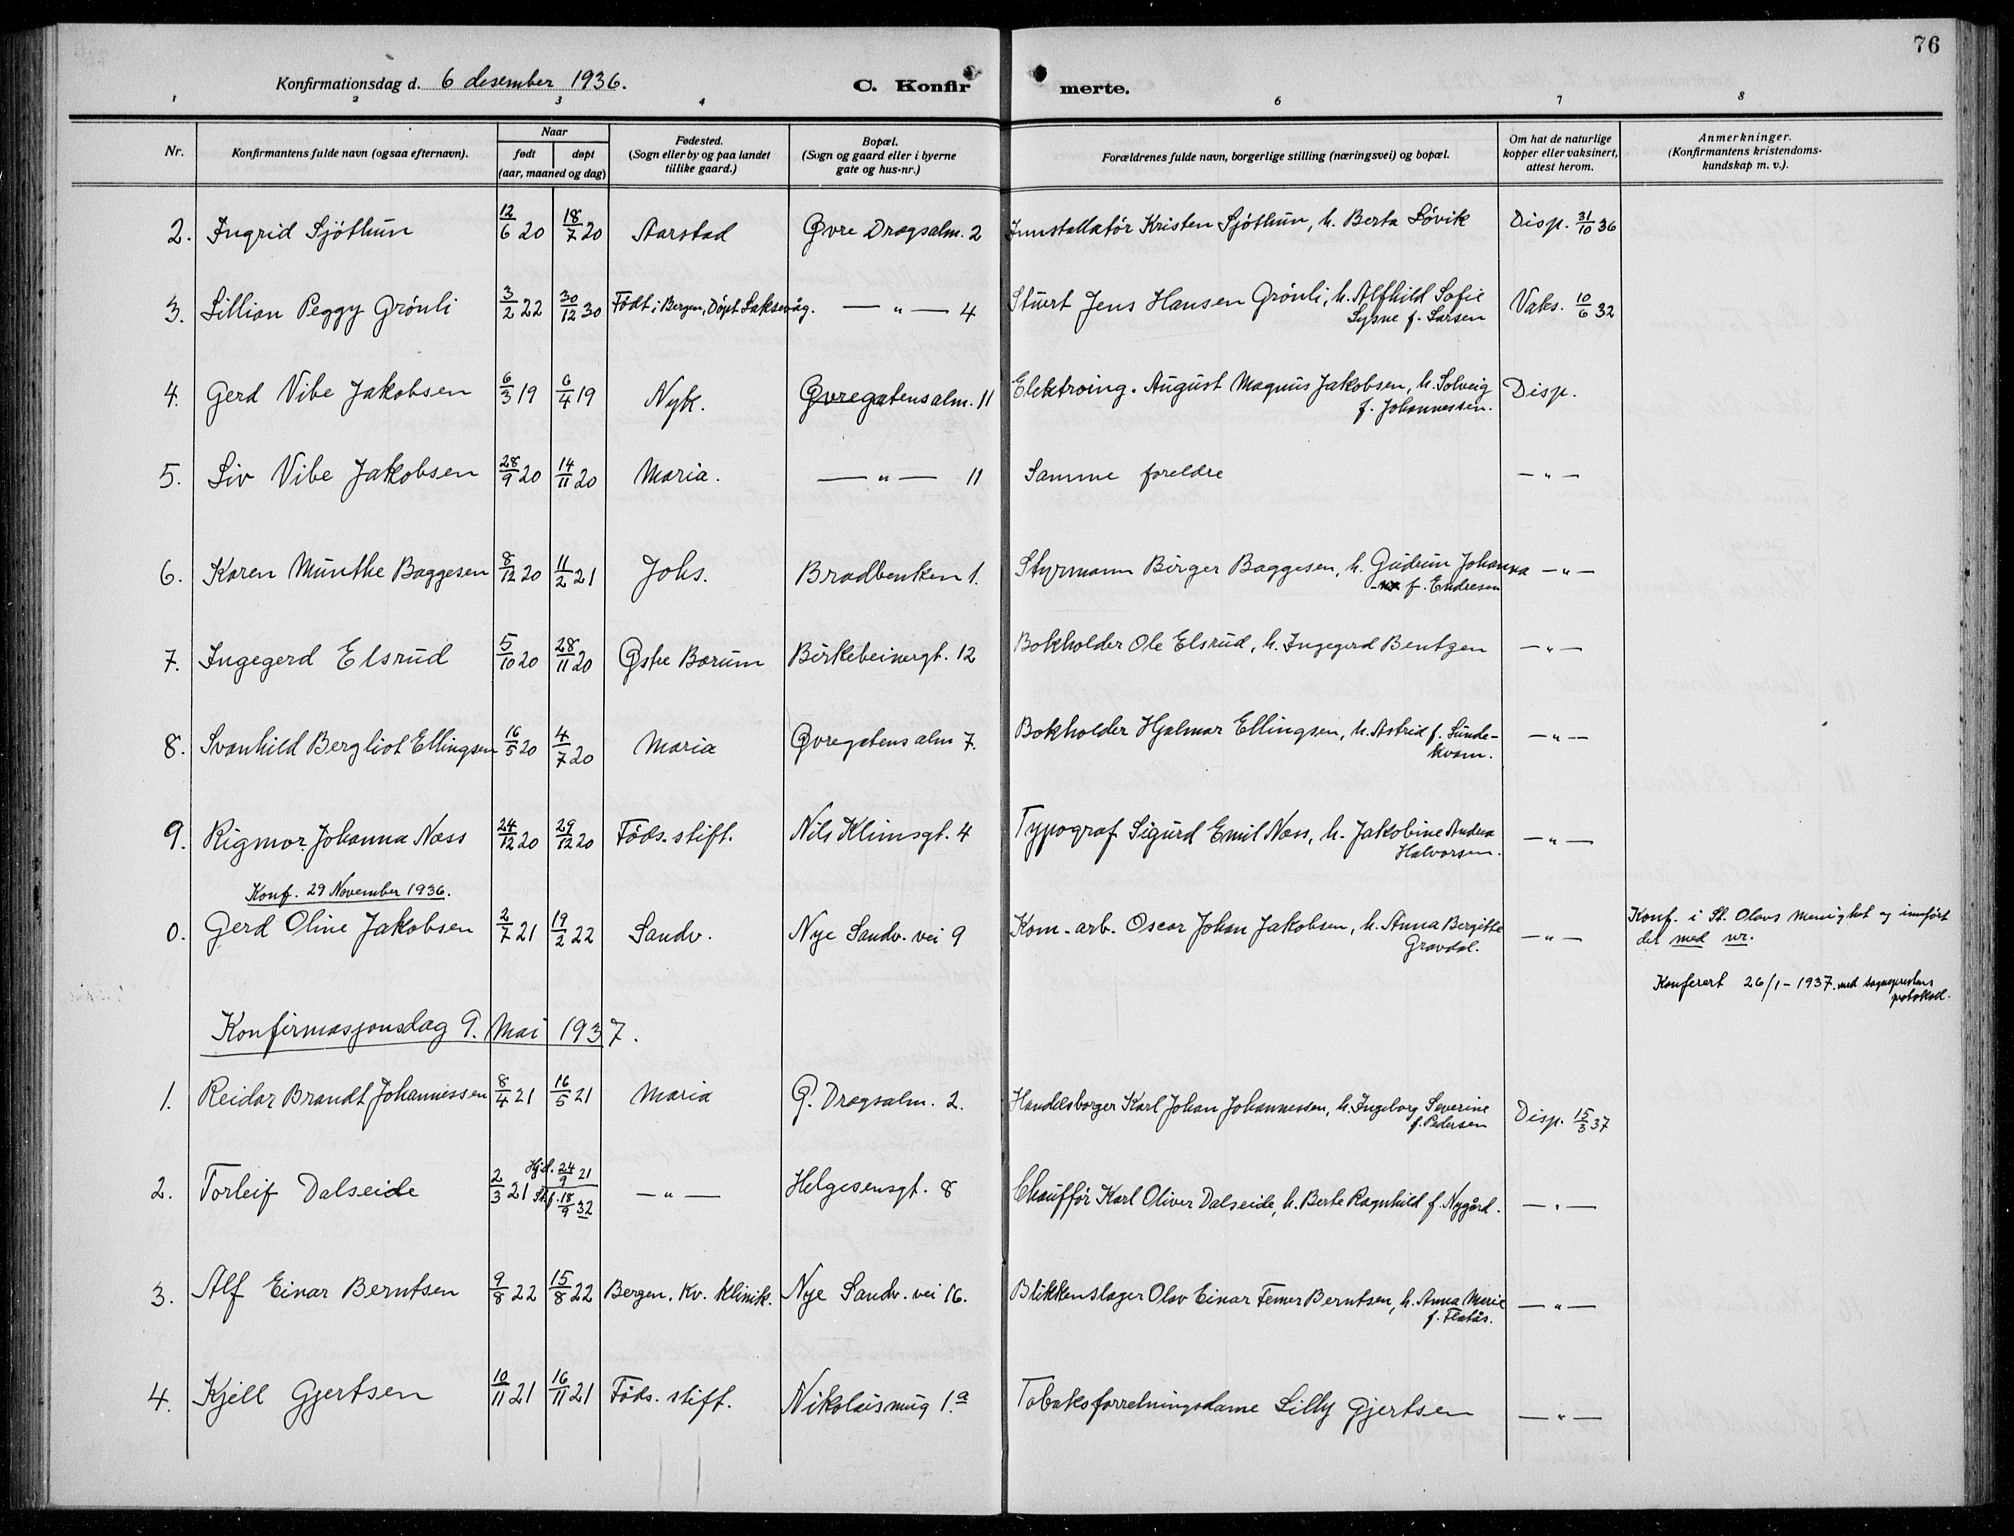 76
Konfirmationsdag d. 6 desember 1936. C. Konfir merte.
1 2 3 4 6 7 8
Nr. Konfirmantens fulde navn (ogsaa efternavn). Naar født døpt (aar, maaned og dag) Fødested. (Sogn eller by og paa landet tillike gaard.) Bopæl. (Sogn og gaard eller i byerne gate og hus-nr.) Forældrenes fulde navn, borgerlige stilling (næringsvei) og bopæl. Om hat de naturlige kopper eller vaksinert, attest herom. Anmerkninger. (Konfirmantens kristendoms-kundskap m. v.).
2. Ingrid Sjöthun 12/6 20 18/7 20 Aarstad Øvre Dregsalm. 2 Innstallatör Kristen Sjöthun, h. Berta Lövik Disp. 31/10 36
3. Lillian Peggy Grönli 3/2 22 30/12 30 Födt i Bergen, Döpt Laksevåg. — " — 4 Stuert Jens Hansen Grönli, h. Alfhild Sofie Vaks. 10/6 32
Sysne f. Larsen
4. Gerd Vibe Jakobsen 6/3 19 6/4 19 Nyk. Øvregatens alm. 11 Elektroing. August Magnus Jakobsen, h. Solveig Disp.
f. Johannessen.
5. Liv Vibe Jakobsen 28/9 20 14/11 20 Maria. — " — 11 Samme foreldre — " —
6. Karen Munthe Baggesen 8/12 20 11/2 21 Johs. Bradbenken 1. Styrmann Birger Baggesen, h. Gudrun Johanna — " —
f. Endresen
7. Ingegerd Elsrud 5/10 20 28/11 20 Østre Bærum Birkebeinergt. 12 Bokholder Ole Elsrud, h. Ingegerd Bentzen — " —
8. Svanhild Bergliot Ellingsen 16/5 20 4/7 20 Maria Øvregatens alm 7. Bokholder Hjalmar Ellingsen, h. Astrid f. Sunde- — " —
kvam.
9. Rigmor Johanna Næss 24/12 20 29/12 20 Föds. stift. Nils Klimsgt. 4 Typograf Sigurd Emil Næss, h. Jakobine Andrea — " —
Halvorsen.
Konf. 29 November 1936.
0. Gerd Oline Jakobsen 2/7 21 19/2 22 Sandv. Nye Sandv. vei 9 Kom-arb. Oscar Johan Jakobsen, h. Anna Bergitte — " — Konf. i St. Olavs menighet og innfört
Gravdal. det med nr.
Konferert 26/1-1937. med sogneprestens
protokoll.
Konfirmasjonsdag 9. Mai 1937.
1. Reidar Brandt Johannessen 8/4 21 16/5 21 Maria Ø. Dregsalm. 2. Handelsborger Karl Johan Johannessen, h. Ingeborg Severine Disp. 15/3 37
f. Pedersen
2. Torleif Dalseide 2/3 21 Hjd. 24/9 21 — " — Helgesensgt. 8 Chaufför Karl Oliver Dalseide, h. Berte Ragnhild f. Nygård. — " —
18/9 32
3. Alf Einar Berntsen 9/8 22 15/8 22 Bergen. Kv. klinik. Nye Sandv. vei 16. Blikkenslager Olav Einar Femer Berntsen, h. Anna Marie — " —
f. Flatås.
4. Kjell Gjertsen 10/11 21 16/11 21 Föds. stift. Nikolaismug 1.a Tobaksforretningsdame Lilly Gjertsen — " —